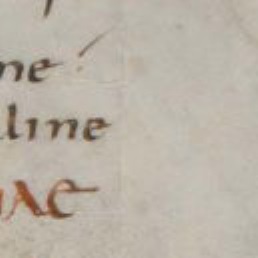 ne
line
iae